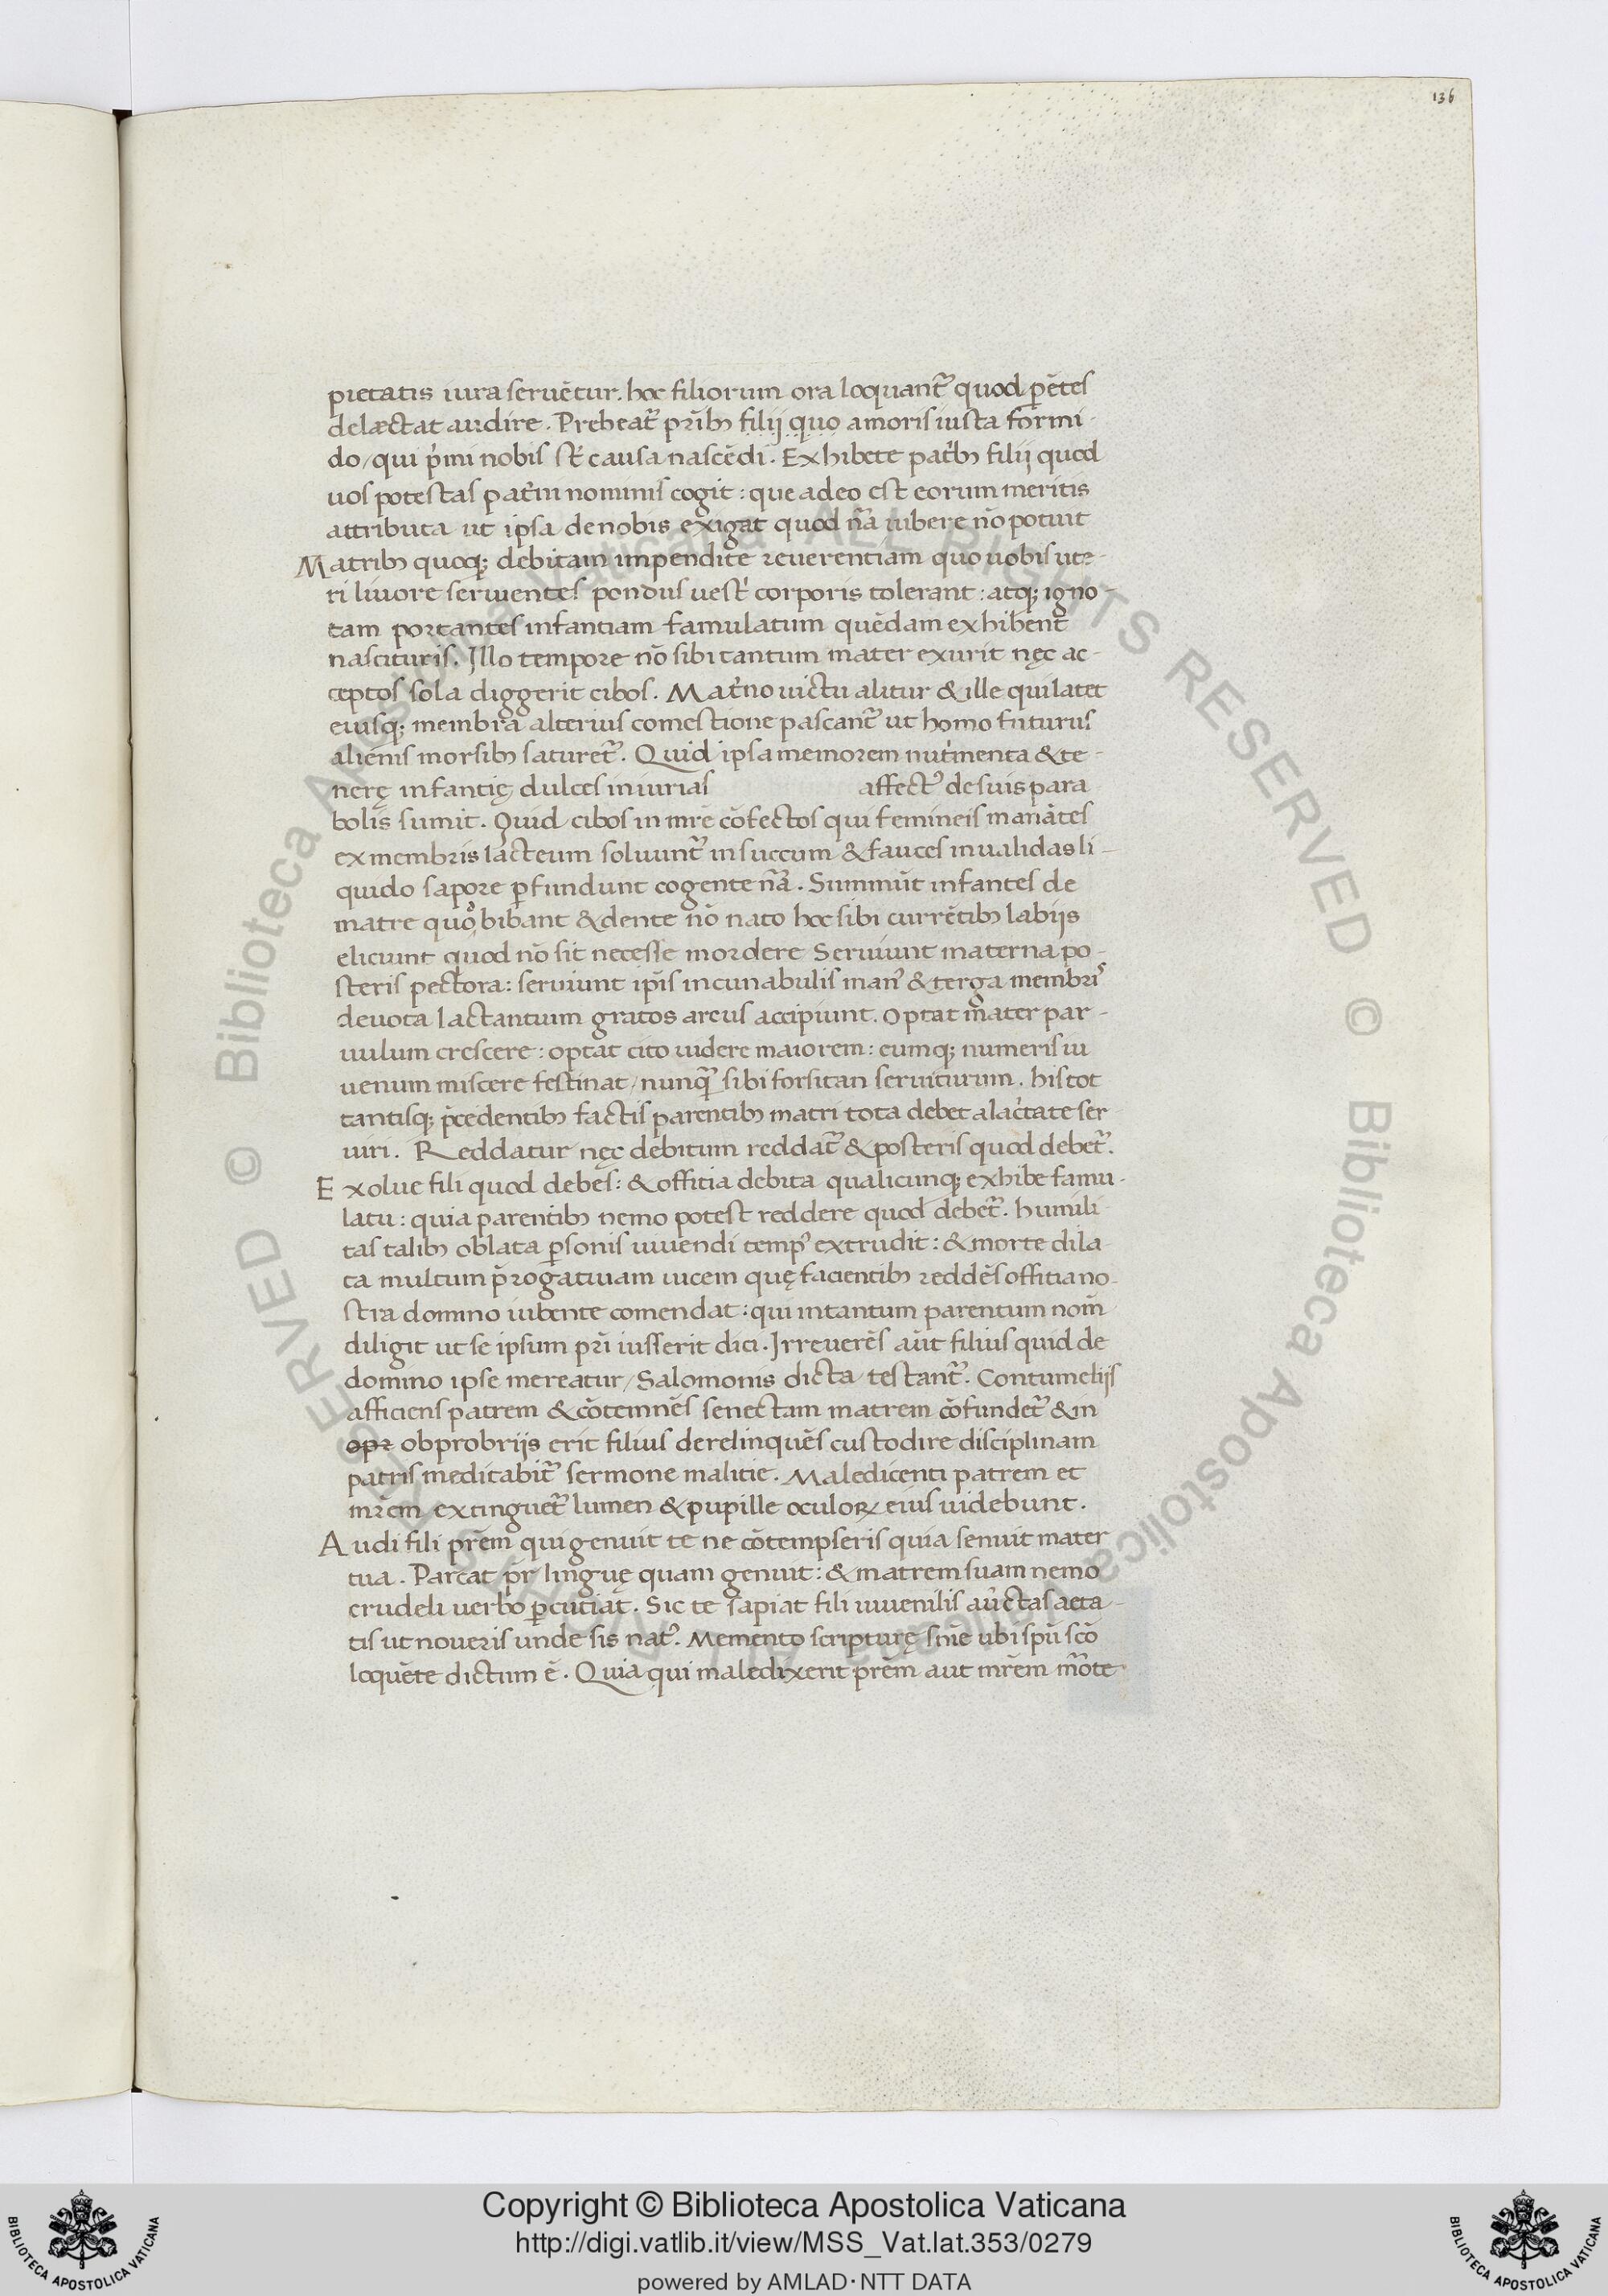 136
pietatis iura seruẽtur. hoc filiorum ora loquant᷑ quod pẽtes
delæctat audire. Prebeat᷑ pr̃ibꝫ filij quo amoris iusta formi-
do/ qui p̃mi nobis st̃ causa nascẽdi. Exhibete pat̃bꝫ filij quod
uos potestas pat̃ni nominis cogit: que adeo est eorum meritis
attributa ut ipsa de nobis exigat quod nr̃a iubere nõ potuit
Matribꝫ quoqꝫ debitam impendite reuerentiam quo uobis ute-
ri liuore seruientes pondus uest̃ corporis tolerant: atqꝫ igno-
tam portantes infantiam famulatum quẽdam exhibent
nascituris. Illo tempore nõ sibi tantum mater exurit nęc ac-
ceptos sola diggerit cibos. Mat̃no uictu alitur & ille qui latet
eiusqꝫ membra alterius comestione pascant᷑ ut homo futurus
alienis morsibꝫ saturet᷑. Quid ipsa memorem nut̃menta & te-
nerę infantię dulces iniurias affectꝰ de suis para
bolis sumit. Quid cibos in mr̃e cõfectos qui femineis manãtes
ex membris lacteum soluunt᷑ in succum & fauces inualidas li-
quido sapore ꝑfundunt cogente nã. Summũt infantes de
matre quõ bibant & dente nõ nato hoc sibi currẽtibꝫ labijs
eliciunt quod nõ sit necesse mordere Seruiunt materna po-
steris pectora: seruiunt ip̃is in cunabulis manꝰ & terga membrĩ
deuota lactantium gratos arcus accipiunt. Optat mater par-
uulum crescere: optat cito uidere maiorem: eumqꝫ numeris iu
uenum miscere festinat/ nunq̃ sibi forsitan seruiturum. his tot
tantisqꝫ p̃cedentibꝫ factis parentibꝫ matri tota debet alac̃tate ser
uiri. Reddatur nęc debitum reddat᷑ & posteris quod debet᷑.
Exolue fili quod debes: & offitia debita qualicunqꝫ exhibe famu-
latu: quia parentibꝫ nemo potest reddere quod debet᷑. humili-
tas talibꝫ oblata ꝑsonis uiuendi tempꝰ extrudit: & morte dila-
ta multum p̃rogatiuam uicem quę facientibꝫ reddẽs offitia no-
stra domino iubente comendat: qui intantum parentum nom̃
diligit ut se ipsum pr̃i iusserit dici. Irreuerẽs aũt filius quid de
domino ipse mereatur/ Salomonis dicta testant᷑. Contumelijs
afficiens patrem & cõtemnẽs senectam matrem cõfundet᷑ & in
opr obprobrijs erit filius derelinquẽs custodire disciplinam
patris meditabit᷑ sermone malitie. Maledicenti patrem et
mr̃em extinguet᷑ lumen & pupille oculoꝝ eius uidebunt.
Audi fili pr̃em qui genuit te ne cõtempseris quia senuit mater
tua. Parcat pr̃ linguę quam genuit: & matrem suam nemo
crudeli uerbo ꝑcutiat. Sic te sapiat fili iuuenilis aũctas aeta-
tis ut noueris unde sis natꝰ. Memento scripturę sñie ubi spũ scõ
loquẽte dictum ẽ. Quia qui maledixerit pr̃em aut mr̃em m̃ote
© Biblioteca Apostolica Vaticana ALL RIGHTS RESERVED © Biblioteca Apostolica Vaticana ALL RIGHTS RESERVED
Copyright © Biblioteca Apostolica Vaticana
http://digi.vatlib.it/view/MSS_Vat.lat.353/0279
powered by AMLAD·NTT DATA
BIBLIOTECA APOSTOLICA VATICANA
BIBLIOTECA APOSTOLICA VATICANA